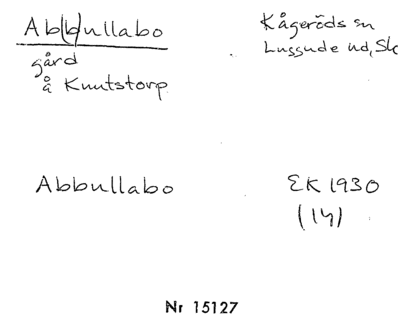 Ab(b)ullabo
gård
å Knutstorp
Kågeröds sn
Luggude hd, Sk
Abbullabo
EK 1930
(14)
Nr 15127